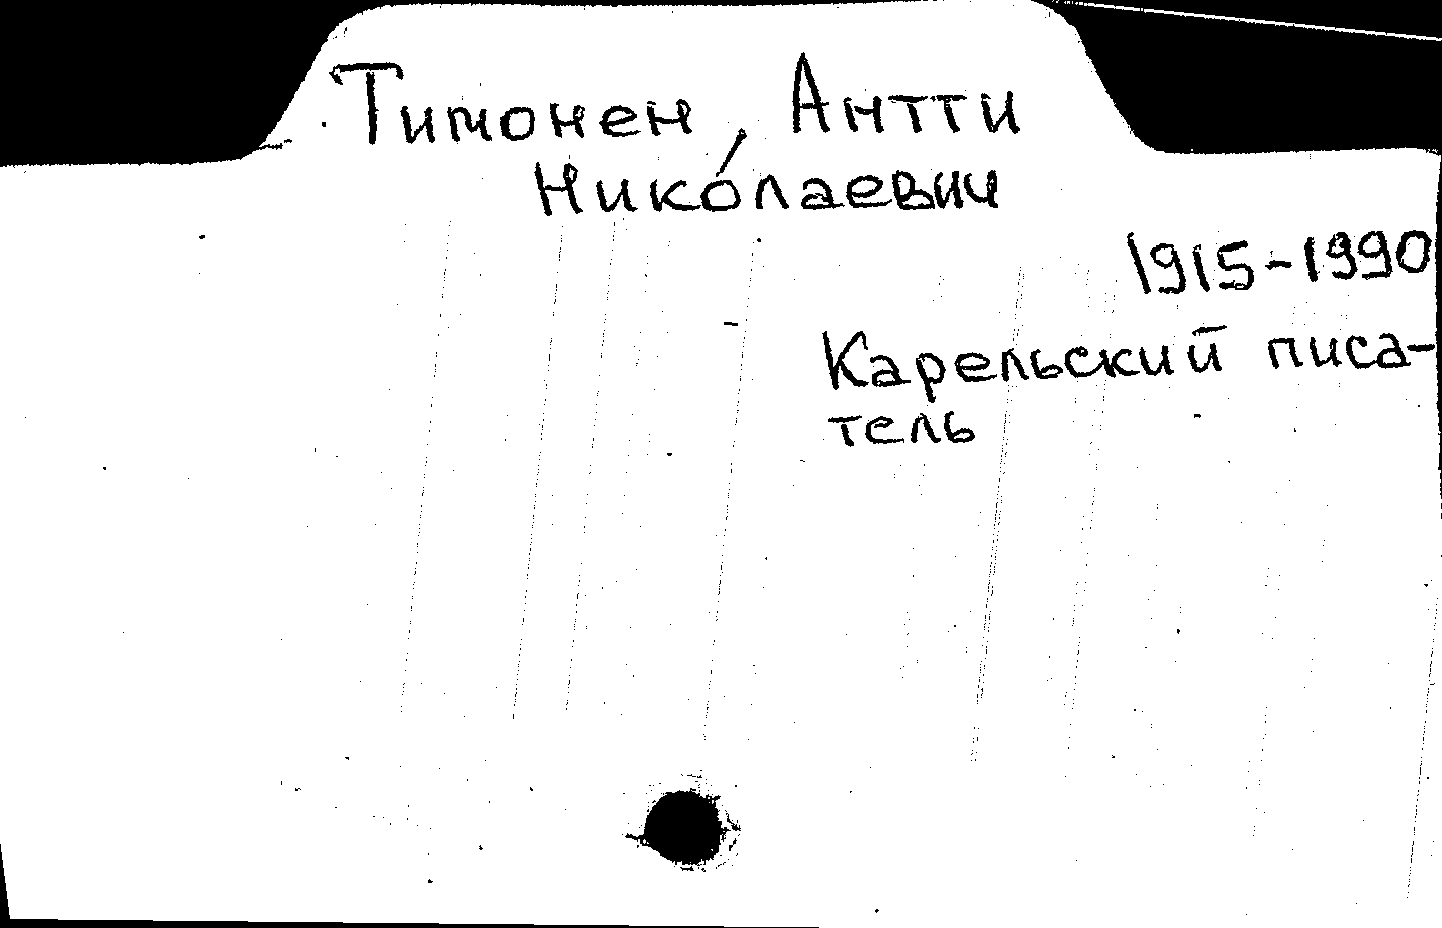 Тимонен, Антти
Николаевич
1915-1990
Карельский писа-
тель